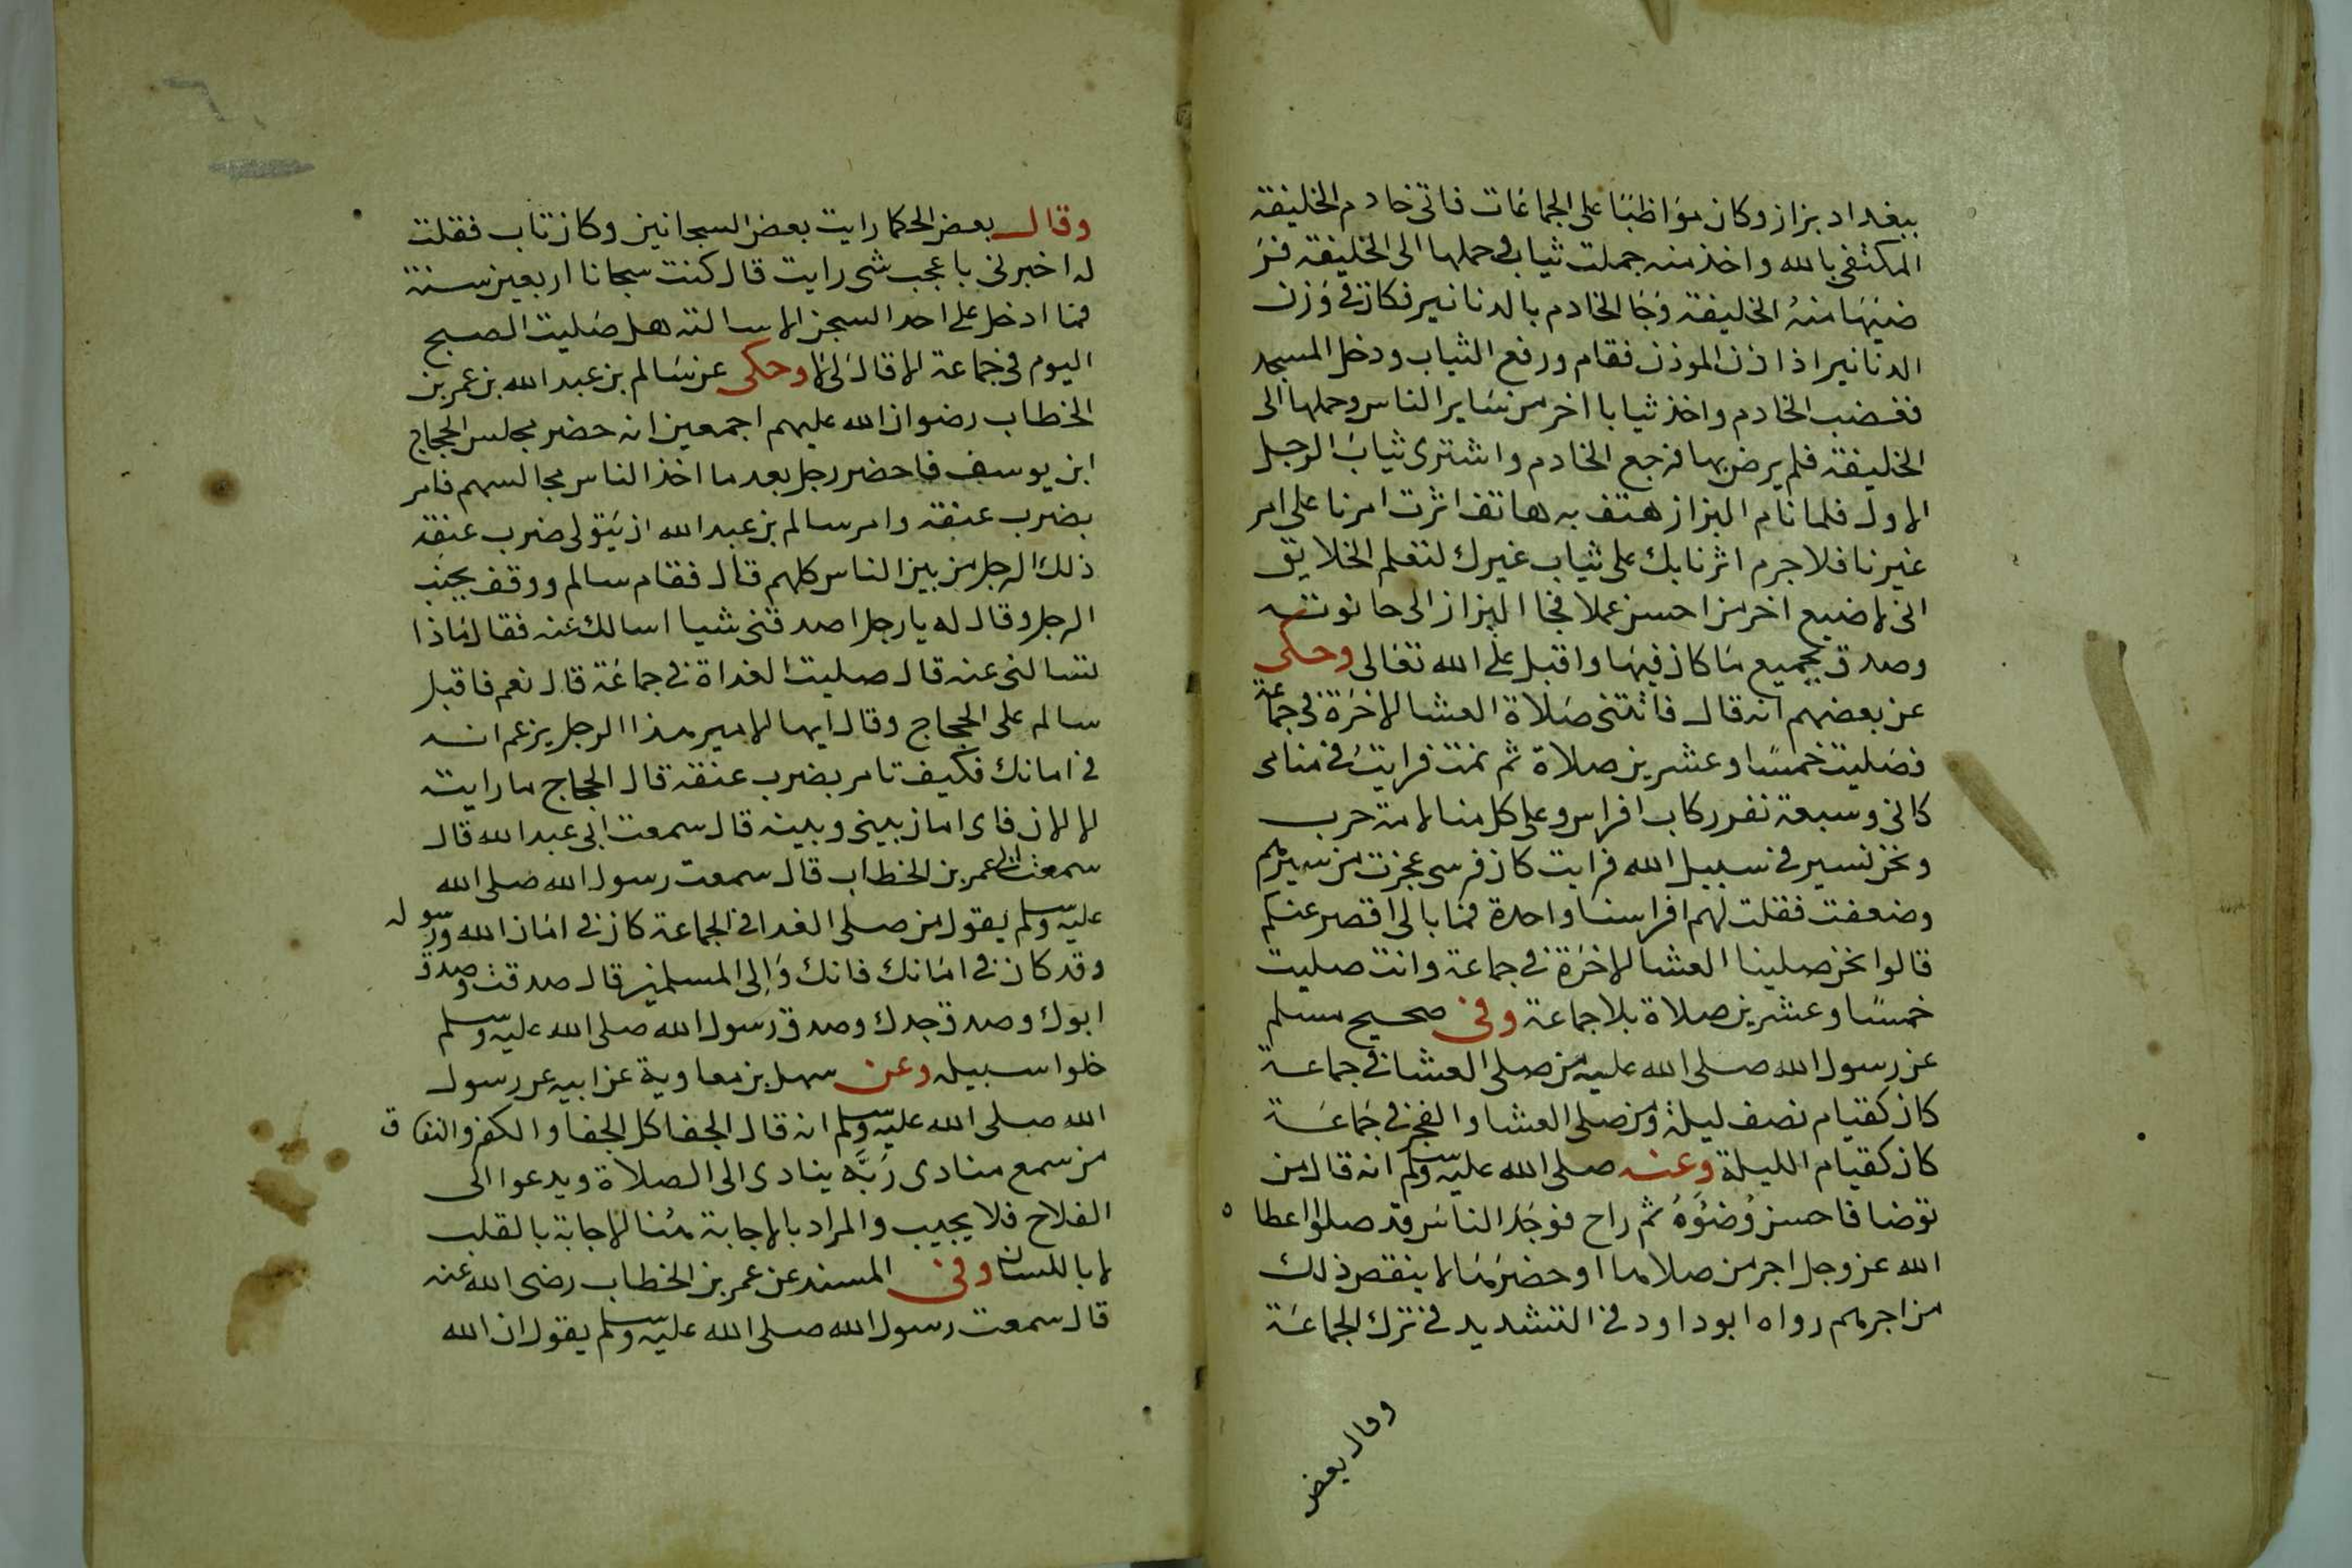 ببغداد بزاز وكان مواظبا على الجماعات فاتى خادم الخليفة
المكتفى بالله واخذ منه جملت ثياب فحملها الى الخليفة فر
ضيها منه الخليفة وجا الخادم بالدنانير فكان فى وزن
الدنانير اذا اذن الموذن فقام ورفع الثياب ودخل المسجد
فغضب الخادم واخذ ثيابا اخر من ساير الناس وحملها الى
الخليفة فلم يرض بها فرجع الخادم واشترى ثياب الرجل
الاول فلما نام البزاز هتف به هاتف اثرت امرنا على امر
غيرنا فلا جرم اثرنا بك على ثياب غيرك لتعلم الخلايق
انى لا ضيع اخر من احسن عملا فجا البزاز الى حانوته
وصدق بجميع ما كان فيها واقبل على الله تعالى وحكى
عن بعضهم انه قال فاتتنى صلاة العشا الاخرة فى جماعة
فصليت خمسا وعشرين صلاة ثم نمت فرايت فى منامى
كانى وسبعة نفر ركاب افراس وعلى كل منا لامة حرب
ونحن نسير فى سبيل الله فرايت كان فرسى عجزت من سيرهم
وضعفت فقلت لهم افراسنا واحدة فما بالى اقصر عنكم
قالوا نحن صلينا العشا الاخرة فى جماعة وانت صليت
خمسا وعشرين صلاة بلا جماعة وفى صحيح مسلم
عن رسول الله صلى الله عليه من صلى العشا فى جماعة
كان كقيام نصف ليلة ومن صلى العشا والفجر فى جماعة
كان كقيام الليلة وعنه صلى الله عليه وسلم انه قال من
توضا فاحسن وضوه ثم راح فوجد الناس قد صلوا اعطا ه
الله عز وجل اجر من صلاها او حضرها لا ينقص ذلك
من اجرهم رواه ابو داود فى التشديد فى ترك الجماعة
وقال بعض
وقال بعض الحكما رايت بعض السجانين وكان تاب فقلت
له اخبرنى باعجب شى رايت قال كنت سجانا اربعين سنة
فما ادخل على احد السجن الا سالته هل صليت الصبح
اليوم فى جماعة الا قال لى لا وحكى عن سالم بن عبد الله بن عمر بن
الخطاب رضوان الله عليهم اجمعين انه حضر مجلس الحجاج
ابن يوسف فاحضر رجل بعد ما اخذ الناس مجالسهم فامر
بضرب عنقه وامر سالم بن عبد الله ان يتولى ضرب عنقه
ذلك الرجل من بين الناس كلهم قال فقام سالم ووقف بجنب
الرجل وقال له يا رجل اصدقنى شيا اسالك عنه فقال ماذا
تسالنى عنه قال صليت الغداة فى جماعة قال نعم فاقبل
سالم على الحجاج وقال ايها الامير هذا الرجل يزعم انه
فى امانك فكيف تامر بضرب عنقه قال الحجاج ما رايته
الا الان فاى امان بينى وبينه قال سمعت ابى عبد الله قال
سمعت عمر بن الخطاب قال سمعت رسول الله صلى الله
عليه وسلم يقول من صلى الغدا فى الجماعة كان فى امان الله ورسوله
وقد كان فى امانك فانك والى المسلمين قال صدقت وصدق
ابوك وصدق جدك وصدق رسول الله صلى الله عليه وسلم
خلوا سبيله وعن سهل بن معاوية عن ابيه عن رسول
الله صلى الله عليه وسلم انه قال الجفا كل الجفا والكفر والنفاق
من سمع منادى ربه ينادى الى الصلاة ويدعوا الى
الفلاح فلا يجيب والمراد بالاجابة هنا الاجابة بالقلب
لا باللسان وفى المسند عن عمر بن الخطاب رضى الله عنه
قال سمعت رسول الله صلى الله عليه وسلم يقول ان الله